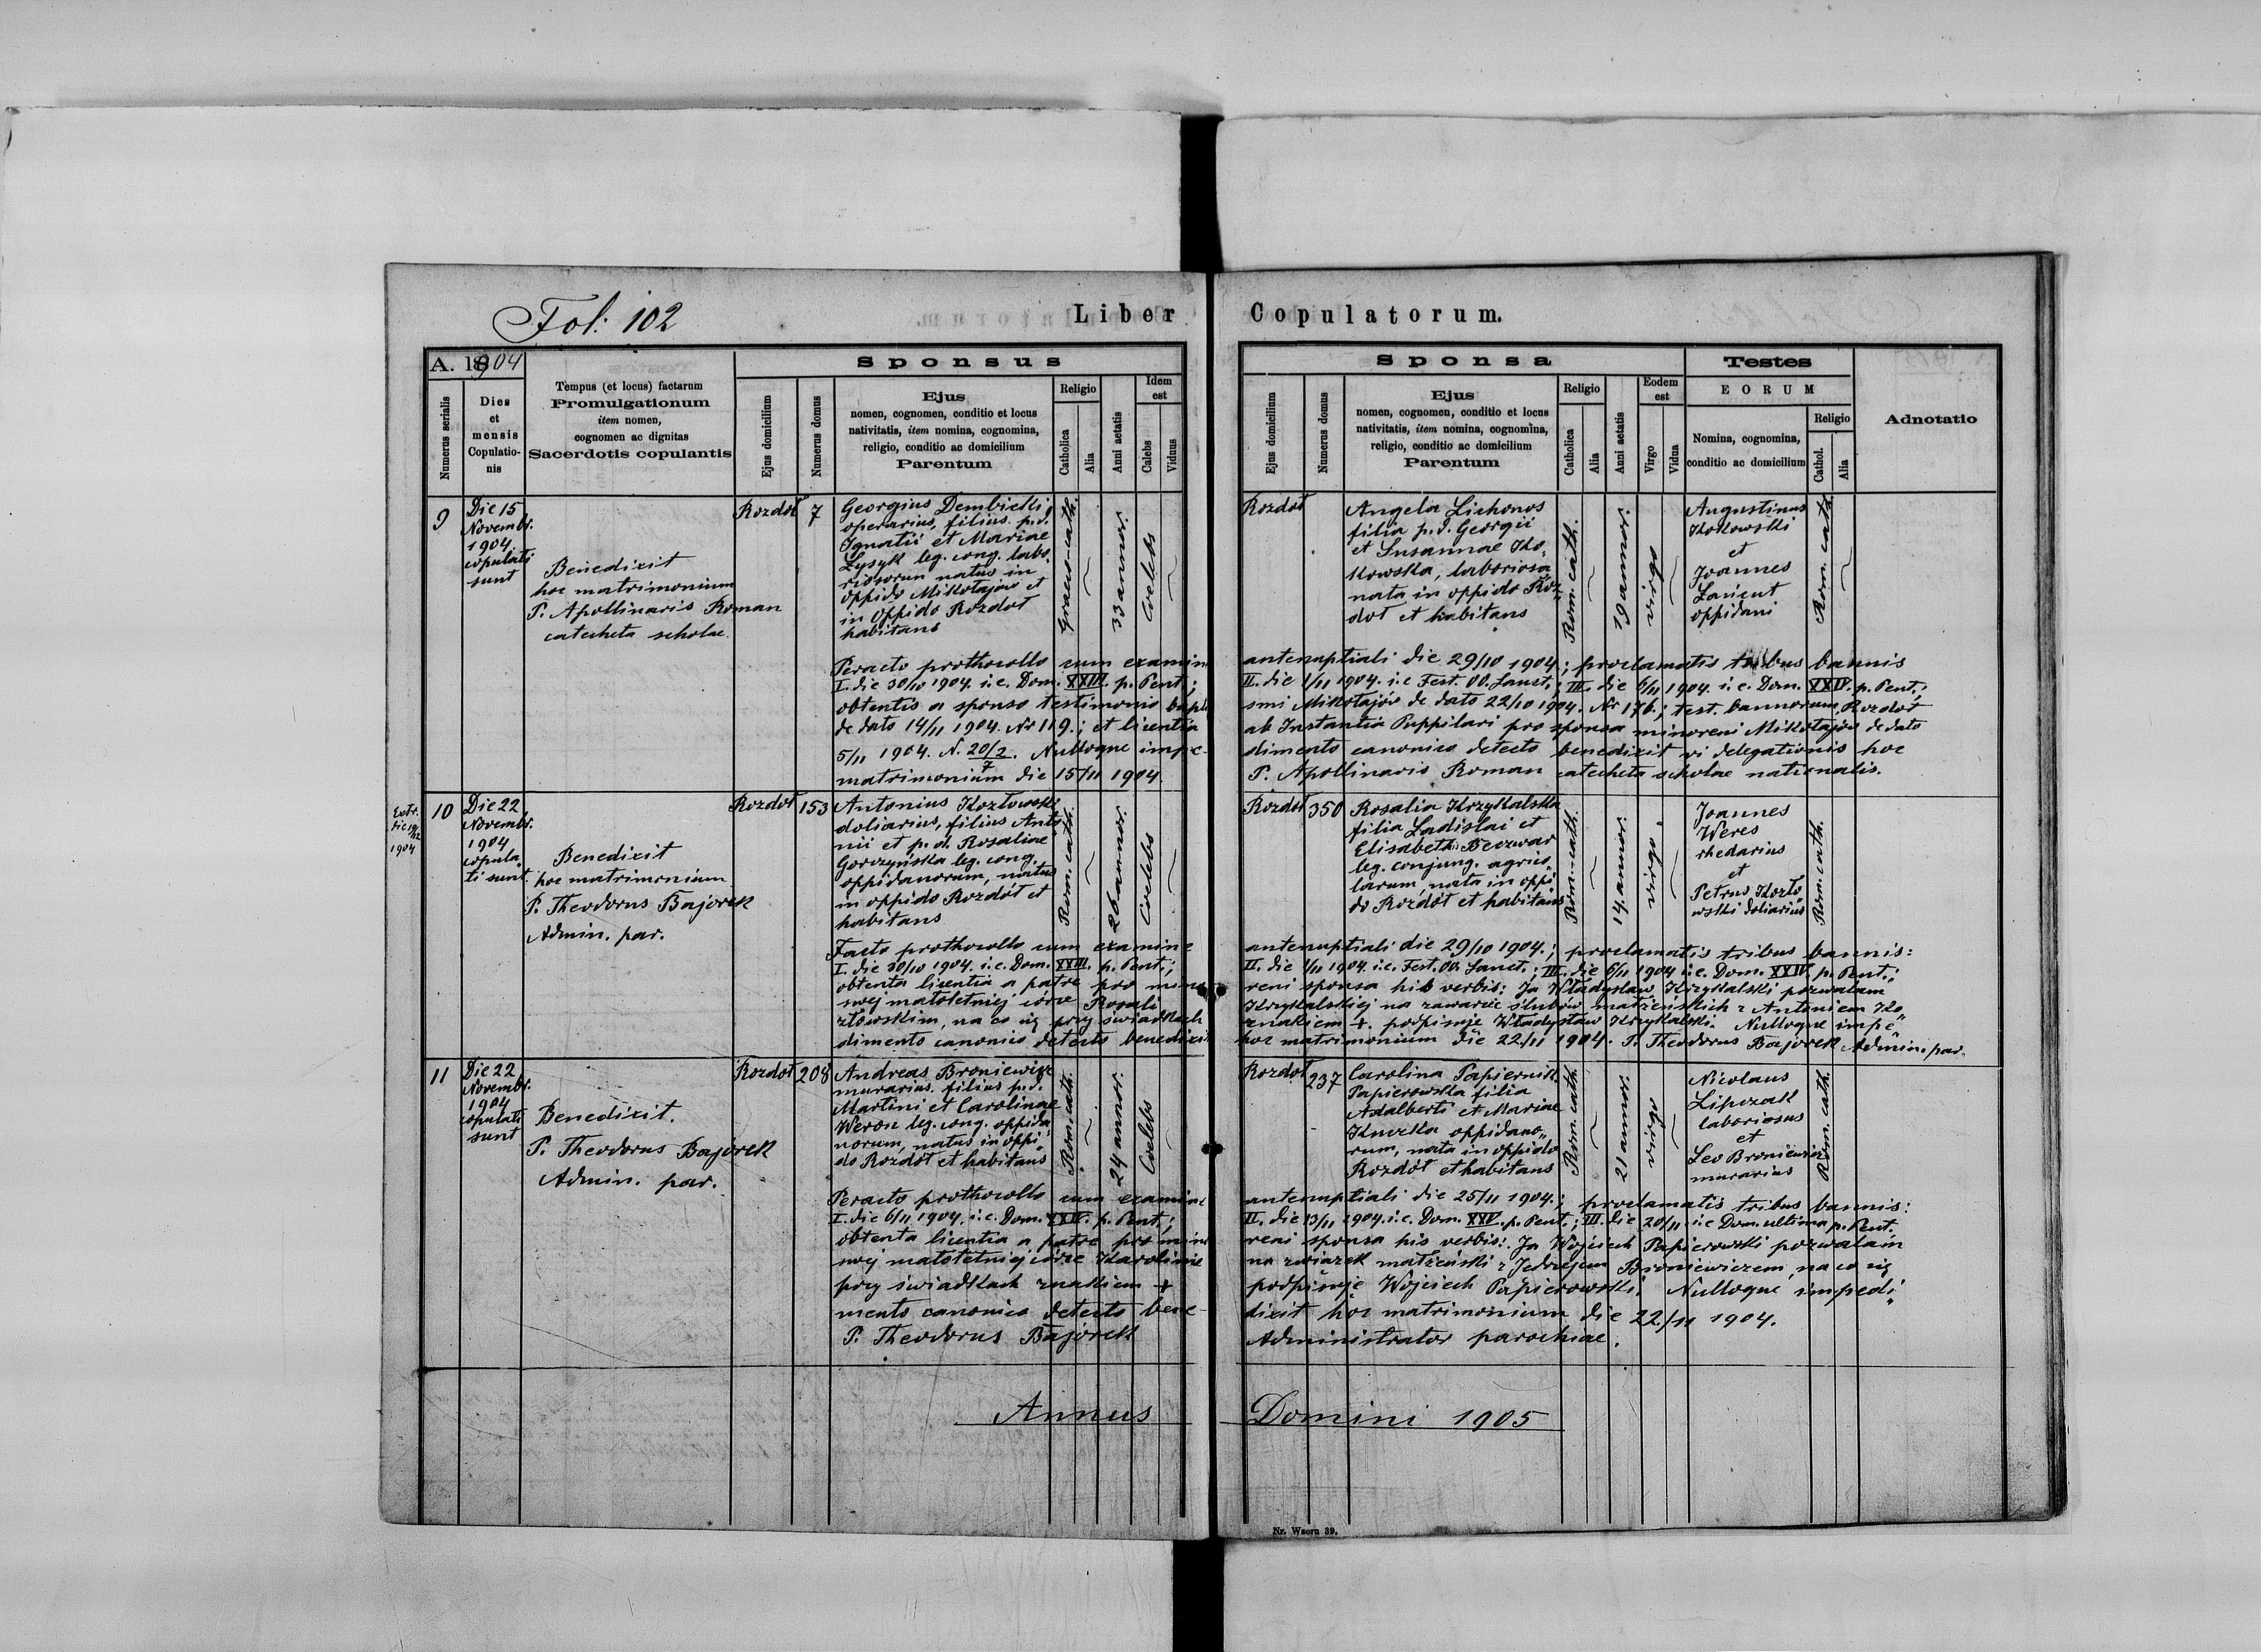 Fol: 102
Liber Copulatorum.
A. 1904
Sponsus
Sponsa
Testes
Numerus serialis
Dies et mensis Copulationis
Tempus (et locus) factarum
Promulgationum
item nomen,
cognomen ac dignitas
Sacerdotis copulantis
Ejus domicilium
Numerus domus
Ejus
nomen, cognomen, conditio et locus
nativitatis, item nomina, cognomina,
religio, conditio ac domicilium
Parentum
Religio
Catholica
Alia
Anni aetatis
Idem est
Calebs
Viduus
Ejus domicilium
Numerus domus
Ejus
nomen, cognomen, conditio et locus
nativitatis, item nomina, cognomina,
religio, conditio ac domicilium
Parentum
Religio
Catholica
Alia
Anni aetatis
Eodem est
Virgo
Vidua
EORUM
Nomina, cognomina,
conditio ac domicilium
Religio
Cathol.
Alia
Adnotatio
9
Die 15
Novembr.
1904
copulati
sunt
Benedixit
hoc matrimonium
P. Apollinaris Roman
catecheta scholae.
Rozdoł
7
Georgius Dembicki,
operarius, filius p.d.
Ignatii et Mariae
Łysyk leg. cong. labo
riosorum natus in
oppido Mikołajów et
in Oppido Rozdoł
habitans
Graeco-cath.
33 annor.
Coelebs
Rozdoł
Angela Lichonos
filia p.d. Georgii
et Susannae Ko„
kowska, laboriosa
nata in oppido Roz„
doł et habitans
Rom. cath.
19 annor.
virgo
Augustinus
Kokowski
et
Joannes
Łańcut
oppidani
Rom. cath.
Peracto prothocollo cum examin antenuptiali die 29/10 1904.; proclamatis tribus bannis
I. die 30/10 1904. i.e. Dom. XXIII. p. Pent.; II. die 1/11 1904. i.e Fest. OO. Sanct.; III. die 6/11 1904. i.e. Dom. XXIV. p. Pent.;
obtentis a sponso testimonio bapti smi Mikołajów de dato 22/10 1904. Nr 176.; test. bannorum Rozdoł
de dato 14/11 1904. Nr 119.; et licentia ab Instantia Puppilari pro sponsa minoreni Mikołajów de dato
5/11 1904. N. 20/2 7. Nulloque impe- dimento canonico detecto benedixit vi delegationis hoc
matrimonium die 15/11 1904. P. Apollinaris Roman catecheta scholae nationalis.
Extr.
1904
10
Die 22
Novembr.
1904
copula„
ti sunt.
Benedixit
hoc matrimonium
P. Theodorus Bajorek
Admin. par.
Rozdoł
153
Antonius Kozłowski
doliarius, filius Anto
nii et p.d. Rosaliae
Gorczyńska leg. cong.
oppidanorum, natus
in oppido Rozdół et
habitans
Rom. cath.
26 annor.
Coelebs
Rozdoł
350
Rosalia Krzykalska
filia Ladislai et
Elisabetha Beczwar
leg. conjung. agrico„
larum, nata in oppi
do Rozdół et habitans
Rom. cath.
14. annor.
virgo.
Joannes
Weres
rhedarius
et
Petrus Kozło
wski doliarius
Rom. cath.
Facto prothocollo cum examine antenuptiali die 29/10 1904.; proclamatis tribus bannis:
I. die 30/10 1904. i.e. Dom. XXIII. p. Pent.; II. die 1/11 1904. i.e. Fest. OO. Sanct.; III. die 6/11 1904 i.e. Dom. XXIV p. Pent.;
obtenta licentia a patre pro mino reni sponsa his verbis: Ja Władysław Krzykalski pozwalam
swej małoletniej córce Rosali Krzykalskiej na zawarcie ślubów małżeńskich z Antoniem Ko„
złowskim, na co się przy świadkach znakiem +. podpisuje Władysław Krzykalski. Nulloque impe„
dimento canonico detecto benedixit hoc matrimonium die 22/11 1904. P. Theodorus Bajorek Admin. par.
11
Die 22
Novembr.
1904
copulati
sunt
Benedixit.
P. Theodorus Bajorek
Admin. par.
Rozdoł
208
Andreas Broniewicz
murarius, filius p.d.
Martini et Carolinae
Weron leg. cong. oppida
norum, natus in oppi„
do Rozdół et habitans
Rom. cath.
24 annor.
Coelebs
Rozdoł
237
Carolina Papiernik
Papierowska filia
Adalberti et Mariae
Kuczka oppidano„
rum, nata in oppido
Rozdół et habitans
Rom. cath.
21 annor.
virgo
Nicolaus
Lipczak
laboriosus
et
Leo Broniewicz
murarius
Rom. cath.
Peracto prothocollo cum examine antenuptiali die 25/11 1904.; proclamatis tribus bannis:
I. die 6/11 1904. i.e. Dom. XXIV. p. Pent.; II. die 13/11 1904. i.e. Dom. XXV. p. Pent.; III. die 20/11 i.e Dom. ultima p. Pent.
obtenta licentia a patre pro mino reni sponsa his verbis: Ja Wojciech Papierowski pozwalam
swej małoletniej córce Karolinie na związek małżeński z Jędrzejem Broniewiczem, na co się
przy świadkach znakiem + podpisuje Wojciech Papierowski. Nulloque impedi„
mento canonico detecto bene- dixit hoc matrimonium die 22./11 1904.
P. Theodorus Bajorek Administrator parochiae.
Annus Domini 1905
Nr. Wzoru 39.